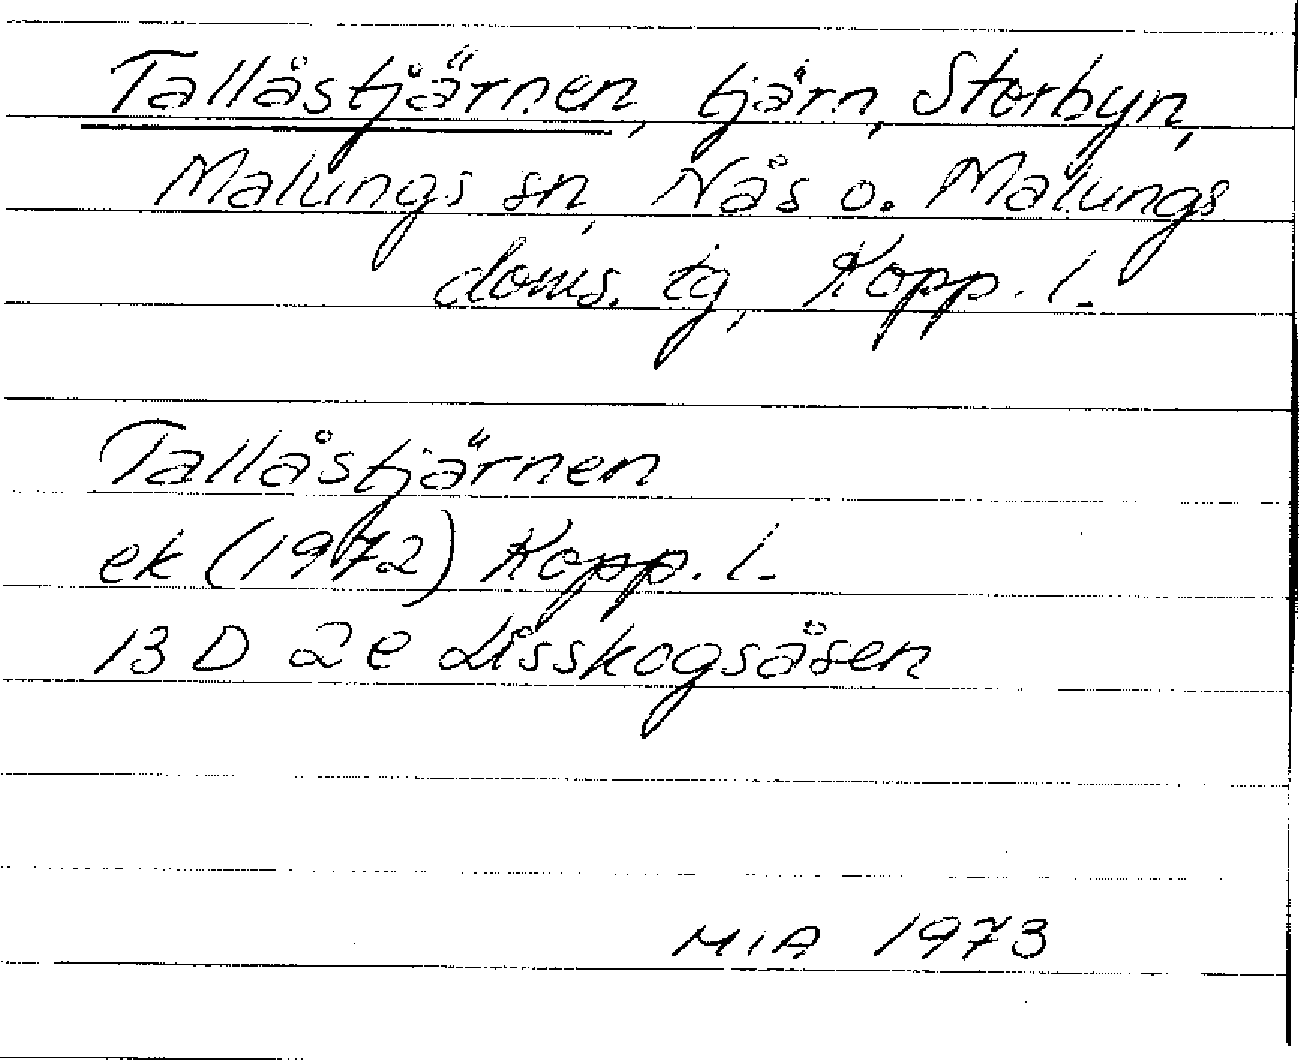 Tallåstjärnen, tjärn, Storbyn,
Malungs sn, Nås o. Malungs
doms. tg, Kopp. l.
Tallåstjärnen
ek (1972) Kopp. l.
13 D 2e Lisskogsåsen
MIA 1973